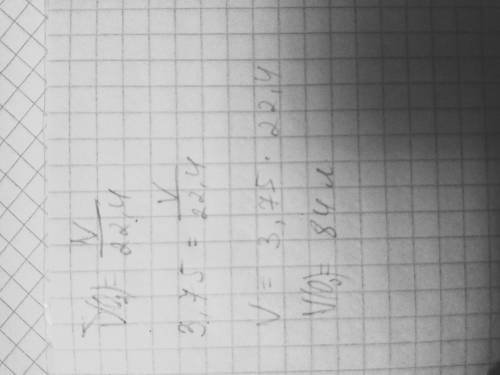 V(O₂) = V/22,4
3,75 = V/22,4
V = 3,75 · 22,4
V(O₂) = 84 л